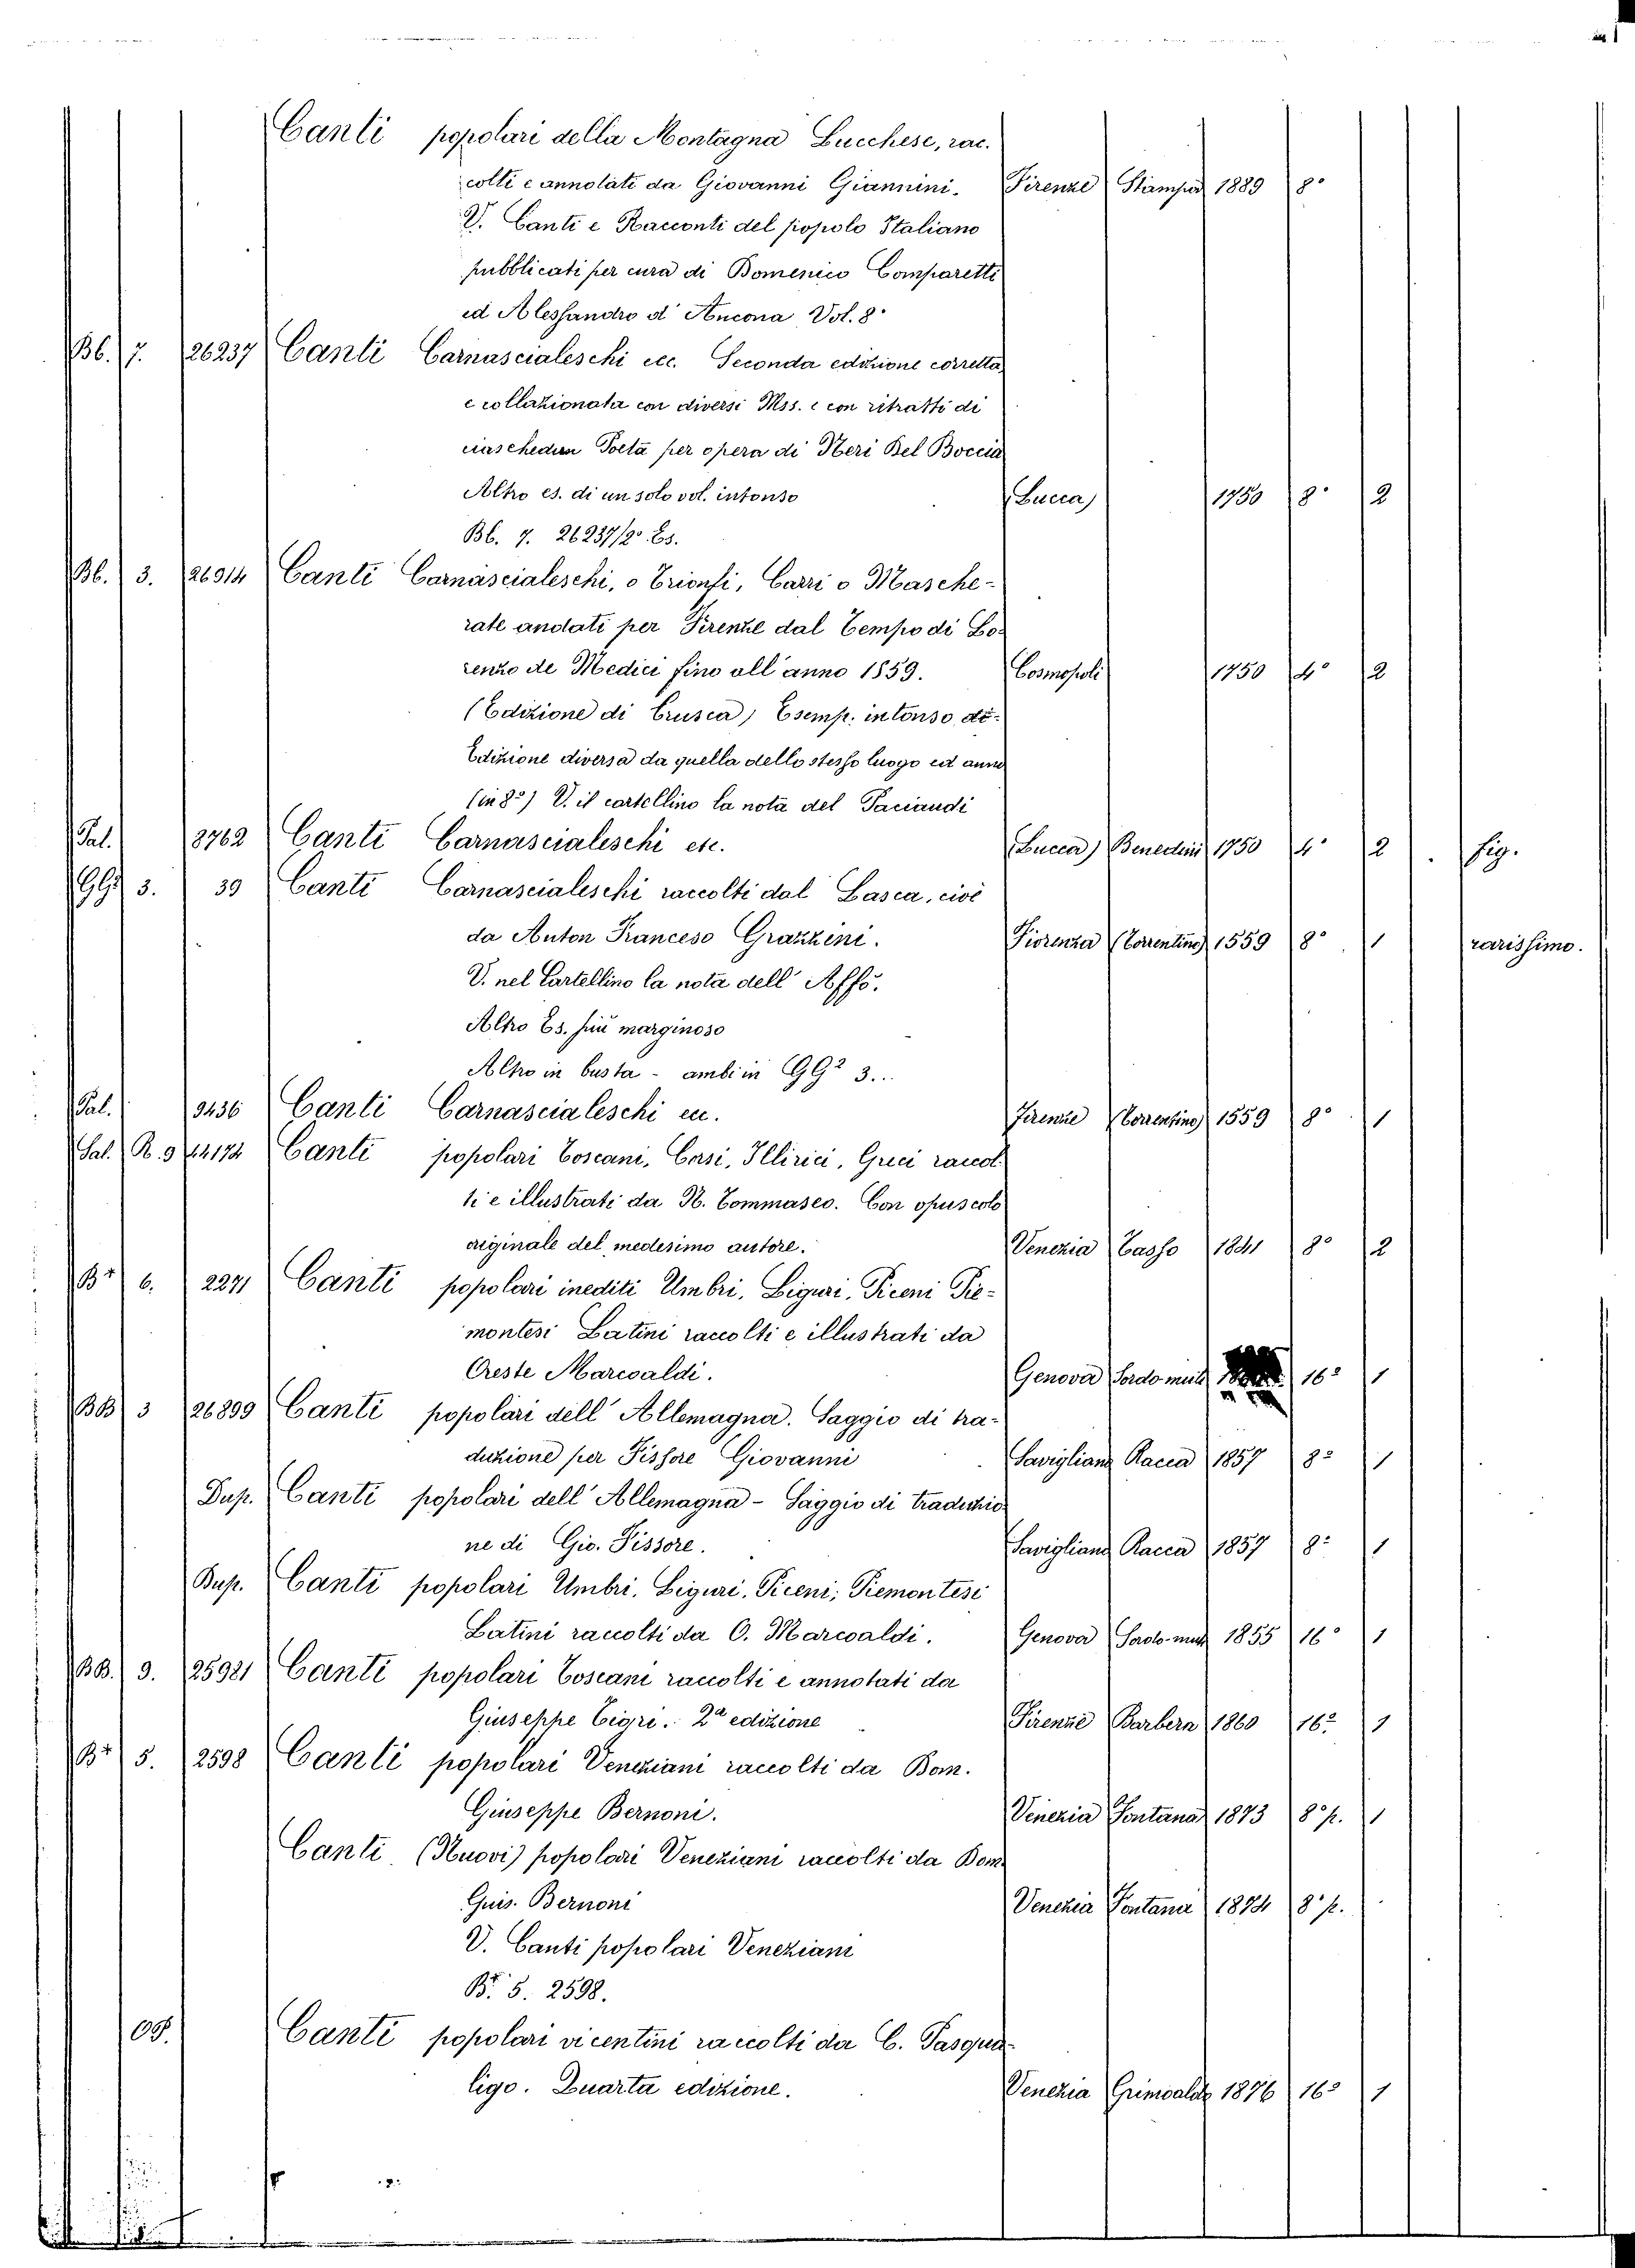 Canti popolari della Montagna Lucchese, rac.
colti e annotati da Giovanni Giannini. Firenze Stamper 1889 8°
V. Canti e Racconti del popolo Italiano
pubblicati per cura di Domenico Comparetti
ed Alessandro d'Ancona Vol. 8°
Bb. 7. 26237 Canti Carnascialeschi ecc. Seconda edizione corretta
e collazionata con diversi Mss. e con ritratti di
ciaschedun Poeta per opera di Neri Del Boccia
Altro es. di un solo vol. intonso (Lucca) 1750 8° 2
Bb. 7. 26237/2° Es.
Bb. 3. 26914 Canti Carnascialeschi, o Trionfi, Carri o Masche-
rate andati per Firenze dal tempo di Lo-
renzo de Medici fino all'anno 1859. Cosmopoli 1750 4° 2
(Edizione di Crusca) Esemp. intonso di-
Edizione diversa da quella dello stesso luogo ed anno
(in 8°) V. il cartellino la nota del Paciaudi
Pal. 8762 Canti Carnascialeschi etc. (Lucca) Benedini 1750 4° 2 . fig.
GG² 3. 39 Canti Carnascialeschi raccolti dal Lasca, cioè
da Anton Franceso Grazzini. Fiorenza (Torrentino) 1559 8° 1 rarissimo.
V. nel Cartellino la nota dell' Affò.
Altro Es. più marginoso
Altro in busta - ambi in GG² 3..
Pal. 9436 Canti Carnascialeschi ec. Firenze (Torrentino) 1559 8° 1
Sal. R. 9 44174 Canti popolari Toscani, Corsi, Illirici, Greci raccol
ti e illustrati da N. Tommaseo. Con opuscolo
originale del medesimo autore. Venezia Tasso 1841 8° 2
B+ 6. 2271 Canti popolari inediti Umbri, Liguri, Piceni Pie-
montesi Latini raccolti e illustrati da
Oreste Marcoaldi. Genova Sordo muti 16° 1
BB 3 26899 Canti popolari dell' Allemagna. Saggio di tra-
duzione per Pissore Giovanni Savigliano Racca 1857 8° 1
Dup. Canti popolari dell' Allemagna - Saggio di traduzio
ne di Gio. Pissore. Savigliano Racca 1857 8° 1
Dup. Canti popolari Umbri, Liguri, Piceni, Piemontesi
Latini raccolti da O. Marcoaldi. Genova Sordo-muti 1855 16° 1
BB. 9. 25921 Canti popolari Toscani raccolti e annotati da
Giuseppe Tigri. 2ª edizione Firenze Barbera 1860 16° 1
B+ 5. 2598 Canti popolari Veneziani raccolti da Dom.
Giuseppe Bernoni. Venezia Fontana 1873 8° p. 1
Canti (Nuovi) popolari Veneziani raccolti da Dom.
Guis. Bernoni Venezia Fontana 1874 8° p.
V. Canti popolari Veneziani
B+ 5. 2598.
Canti popolari vicentini raccolti da C. Pasqua-
ligo. Quarta edizione. Venezia Grimoaldo 1876 16° 1